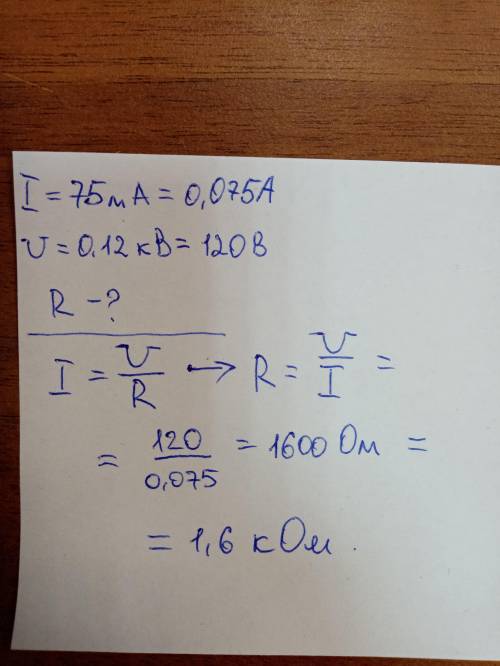 I = 75мА = 0,075А
U = 0.12 кВ = 120В
R - ?
I = U/R → R = U/I =
= 120/0,075 = 1600 Ом =
= 1,6 кОм.